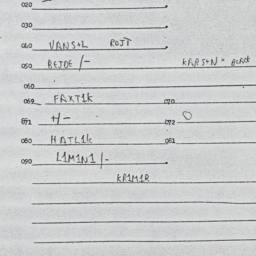 020
030
040 VANS+L ROJT
050 BEJDE /-
060
069 FAXT1K 070
071 +/- 072 O
080 HATL1K 081
090 L1M1N1 /-
KR1M1R